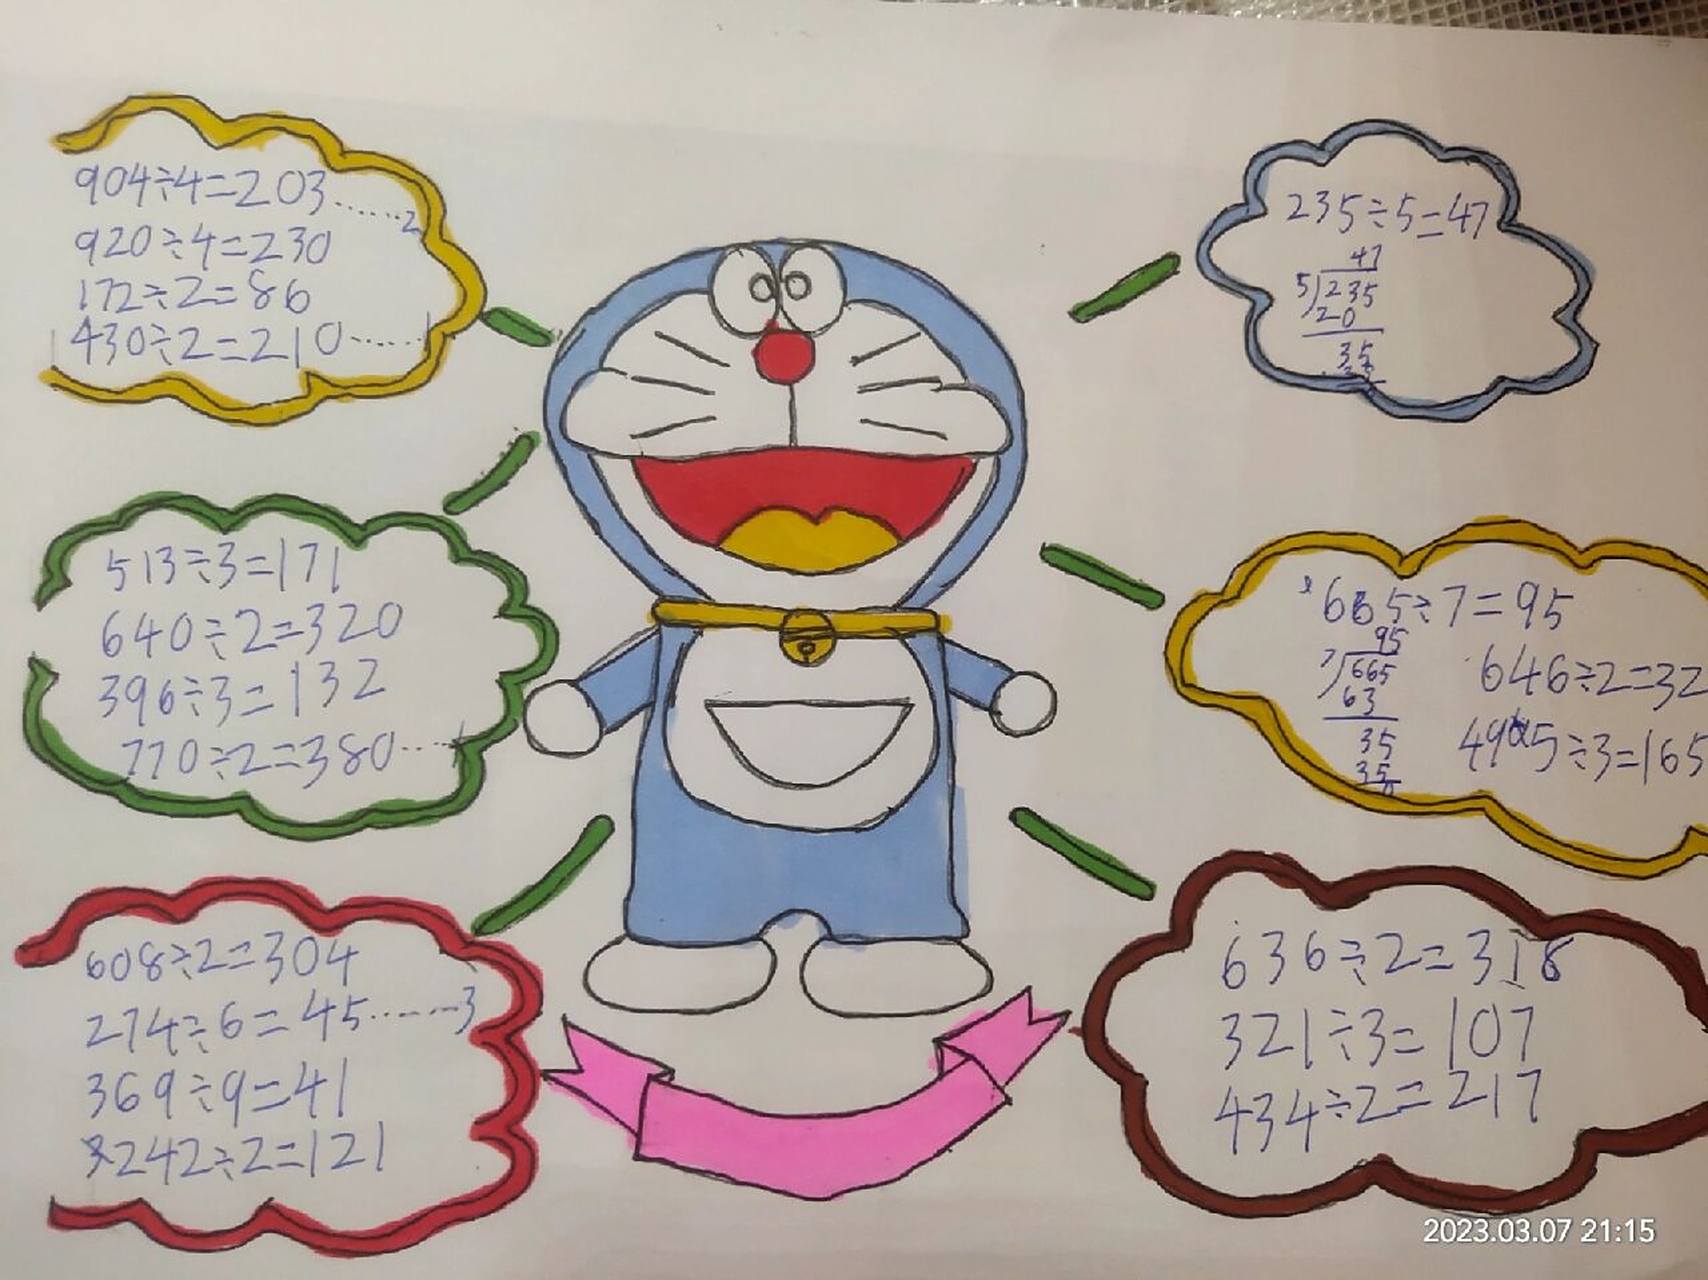 904÷4=203……2
920÷4=230
172÷2=86
430÷2=210……1
513÷3=171
640÷2=320
396÷3=132
770÷2=380……1
608÷2=304
274÷6=45……3
369÷9=41
242÷2=121
235÷5=47
47
5 235
20
35
665÷7=95
95
7 665
63
35
35
0
646÷2=32
495÷3=165
636÷2=318
321÷3=107
434÷2=217
2023.03.07 21:15